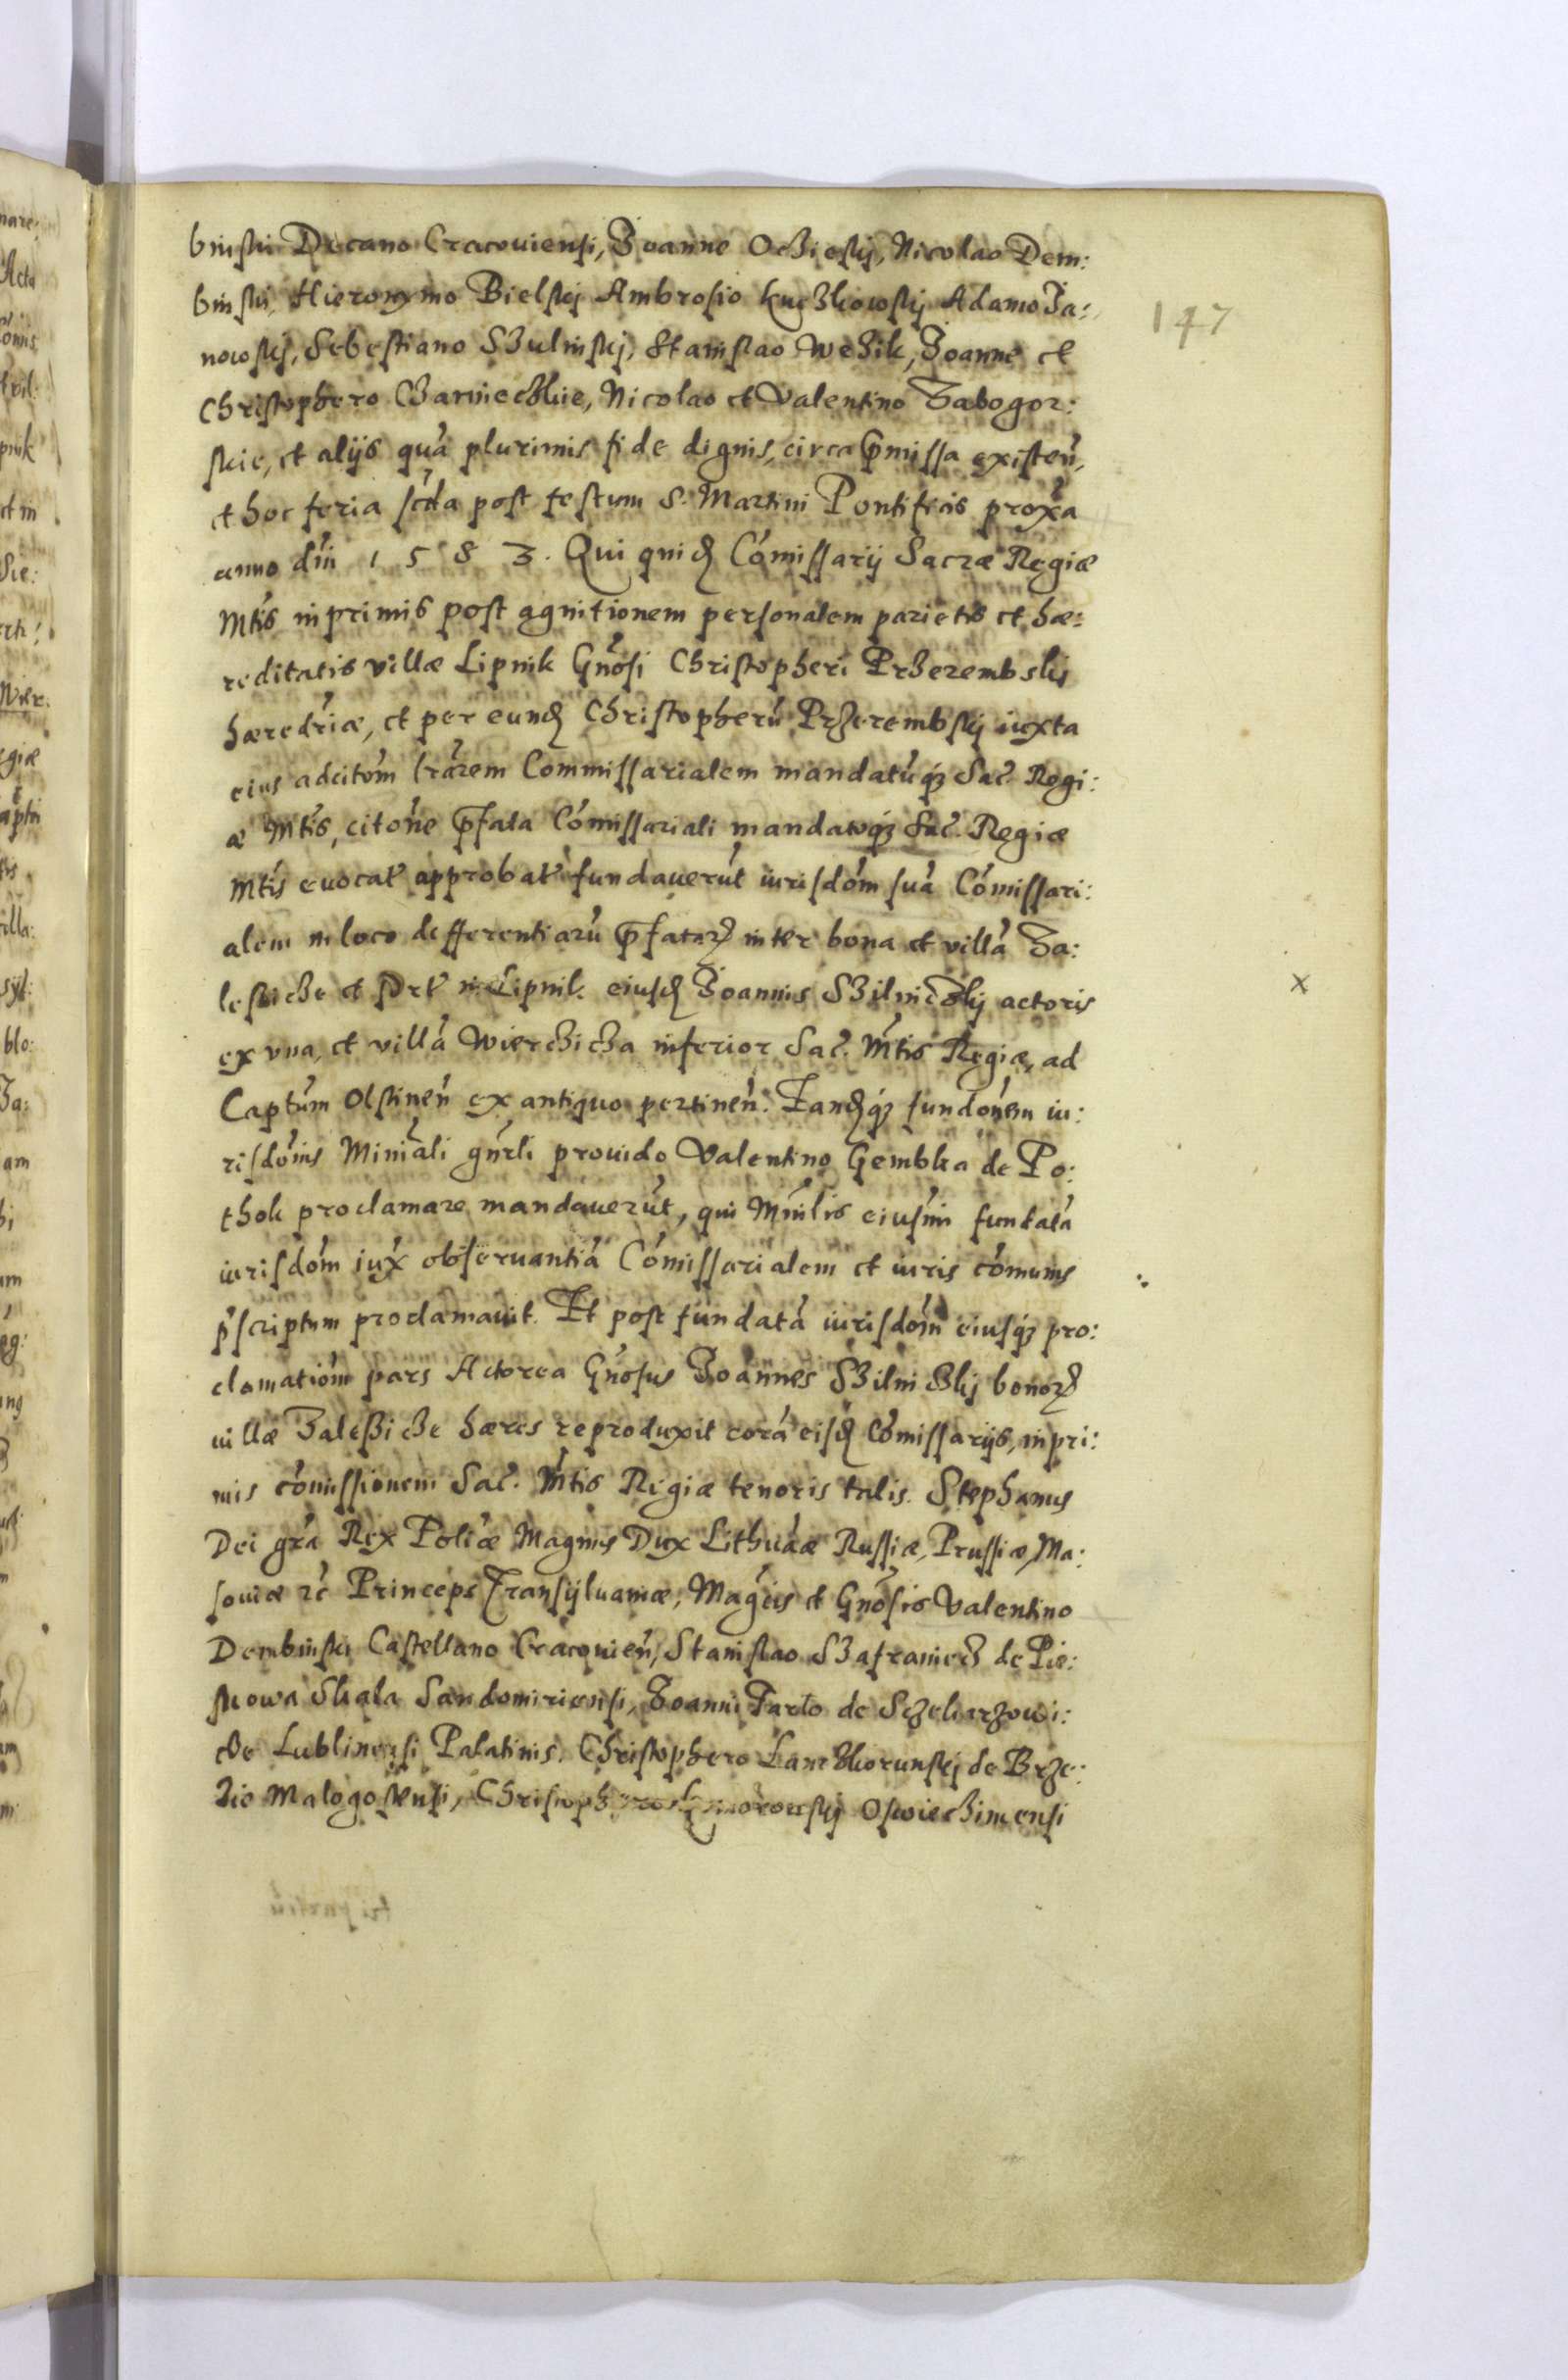 binski Decano Cracouiensi, Joanne Ocziesky, Nicolao Dem:
binski, Hieronymo Bielsky Ambrosio kuczkowsky Adamo Ja:
nowsky, Sebestiano Szulinsky, Stanislao Wezik, Joanne et
Christophero Czarnieczkie, Nicolao et Valentino Zabogor:
skie, et alijs quā plurimis fide dignis, circa p̄missa existeñ,
et hoc feria scđa post festum S. Martini Pontificis proxa
anno dñi 1583. Qui quidē Cōmissarij Sacræ Regiæ
Mtis inprimis post agnitionem personalem parietis et hæ:
reditatis villæ Lipnik Gnosi Christopheri Przerembsky
hæredriæ, et per eundē Christopherū Przerembsky iuxta
eius adcitom lrārem Commissarialem mandatūqz Sac. Regi:
æ Mtis, citone p̄fata Cōmissariali mandatoqz Sac. Regiæ
Mtis euocat approbat fundauerūt iurisdōm suā Cōmissari:
alem in loco defferentiarū p̄fatarū inter bona et villā Za:
lesicze et Lipnik eiusdē Joannis Szilniczky actoris
ex vna, et villā Wierczicza inferior Sac. Mtis Regiæ, ad
Captūm Olstineñ ex antiquo pertineñ. Tandēqz fundōnem iu:
risdōnis Miniāli gnrli prouido Valentino Gembka de Po:
thok proclamare mandauerūt, qui Minlis eiusmi fundatā
iurisdōm iux obseruantiā Cōmissarialem et iuris cōmunis
p̄scriptum proclamauit. Et post fundatā iurisdōm eiusqz pro:
clamatiōm pars Actorea Gnosus Joannes Szilniczky bonorū
villæ Zalessicze hæres reproduxit corā eisdē Cōmissarijs, inpri:
mis cōmissionem Sac. Mtis Regiæ tenoris talis. Stephanus
Dei grā Rex Poliæ Magnus Dux Lithuāæ Russiæ, Prussiæ, Ma:
souiæ ꝛc Princeps Transyluaniæ, Magcis et Gnosis Valentino
Dembinski Castellano Cracouieñ, Stanislao Szafraniecz de Pie:
skowa Skala Sandomiriensi, Joanni Tarlo de Sczekarzowi:
cze Lublinensi Palatinis. Christophero Lanczkorunsky de Brze:
zie Malogostensi, Christophero komorowsky Oswieczimensi
147
x